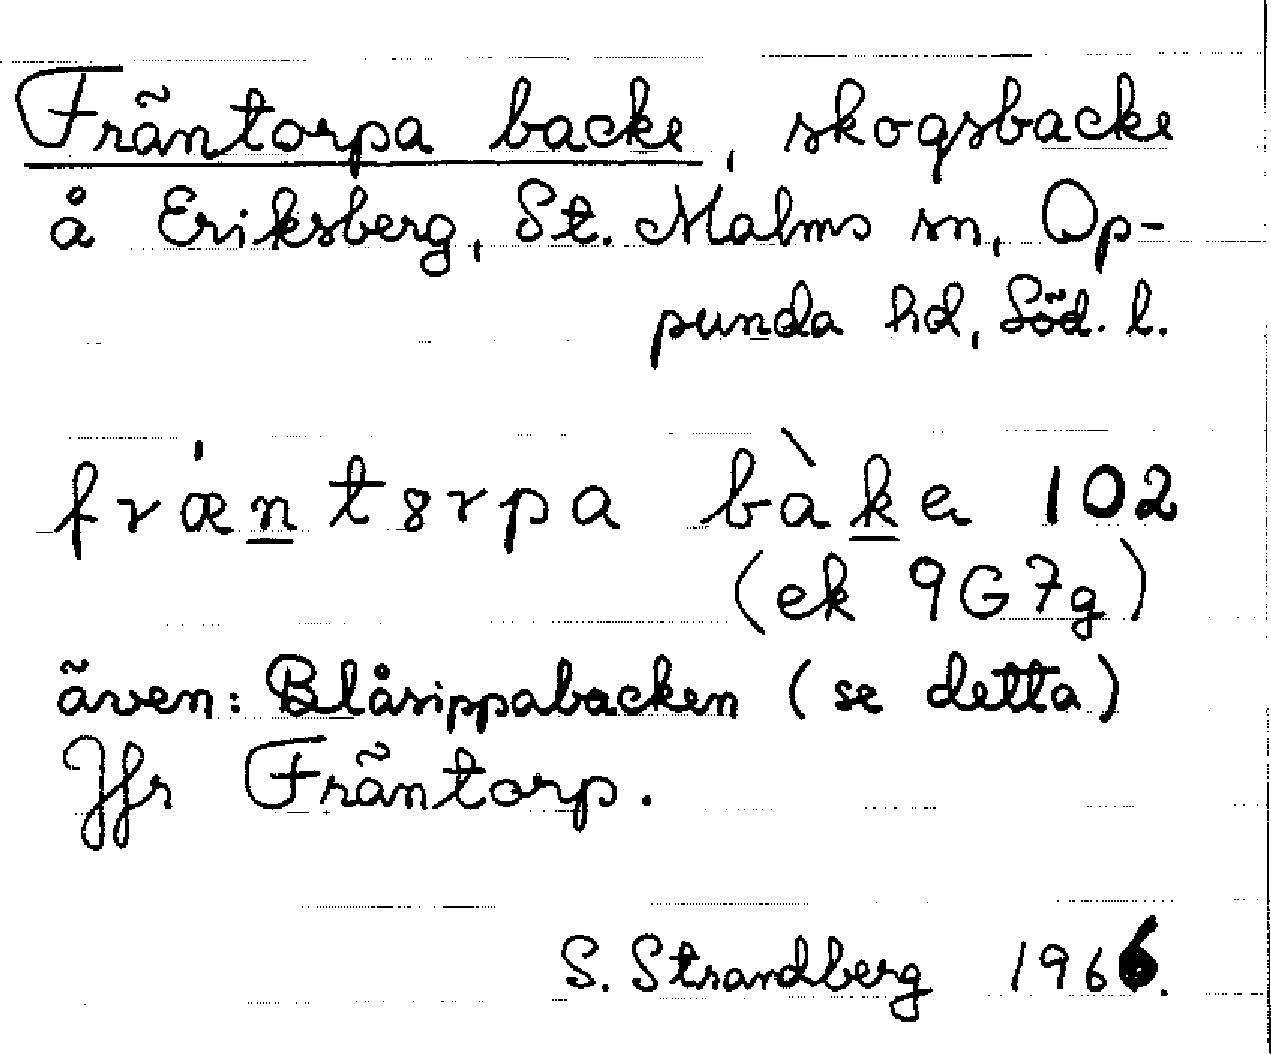 Fräntorpa backe, skogsbacke
å Eriksberg, St. Malms sn, Op-
punda hd, Söd. l.
fræ̍n̲tɞrpa bàk̲e 102
(ek 9G7g)
även: Blåsippabacken (se detta)
Jfr Fräntorp.
S. Strandberg 1966.